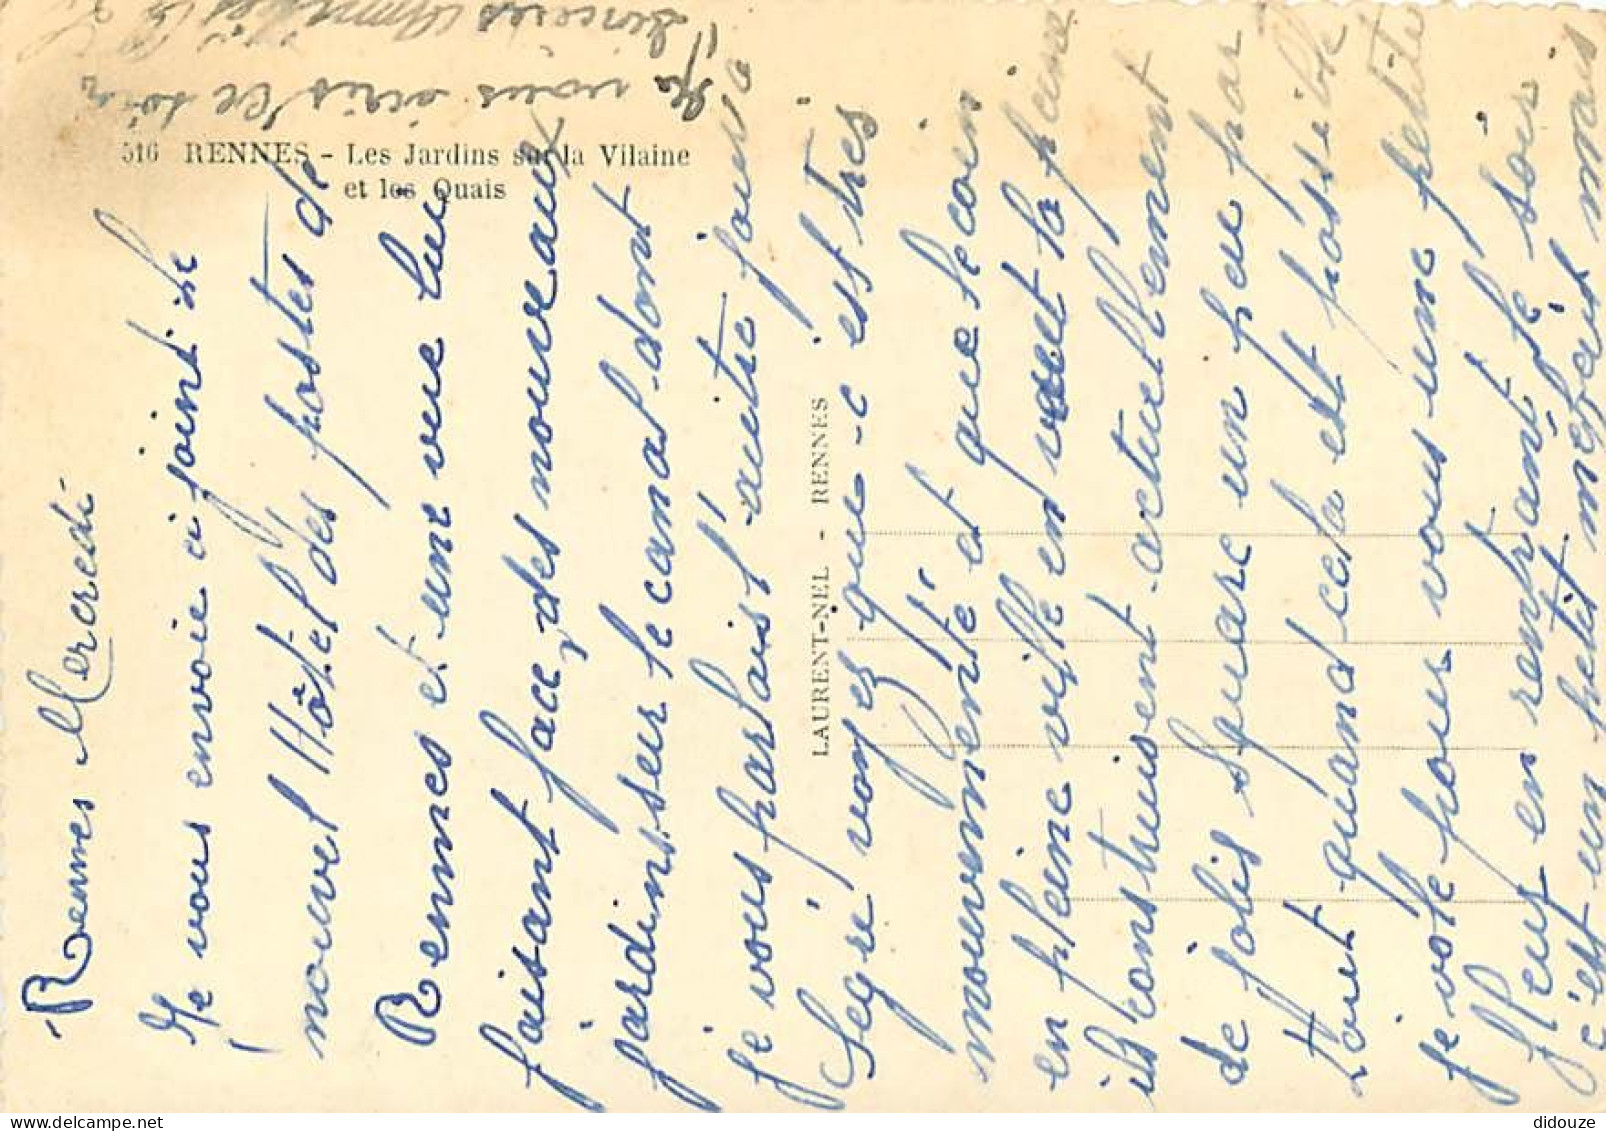 516 RENNES - Les Jardins sur la Vilaine
et les Quais
LAURENT-NEL - RENNES
Rennes Mercredi
Je vous envoie ci joint le
nouvel Hôtel des postes de
Rennes et une vue lui
faisant face, des nouveaux
jardins sur le canal dont
je vous parlais l'autre jour à
Segré vous que c'est très
mouvementé et que le coin
en pleine ville en vaut la peine
ils construisent actuellement
de jolis square un peu par
tout quand cela est possible
je vole pour vous une petite
fleur en rentrant le soir
c'est un petit méfait mais
Je vous écris ce soir
Sincères Amitiés
didouze